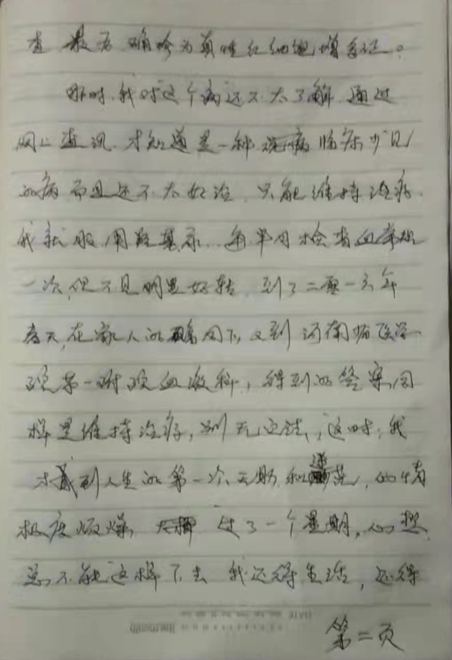 查 最后 确诊为真性红细胞增多证。
那时,我对这个病还不太了解,通过
网上查讯,才知道是一种 临床少见
的病 而且还不太好治,只能维持治疗.
我就服用羟基尿 每半月检查血常规
一次,但不见明显好转,到了二零一六年
春天,在家人的 同下,又到河南省医学
院第一附院血液科,得到的答案同
样是维持治疗,别无他法,这时,我
才感到人生的第一次无助和 茫,心情
极度烦燥 过了一个星期,心想
总不能这样下去 我还得生活,还得
第二页